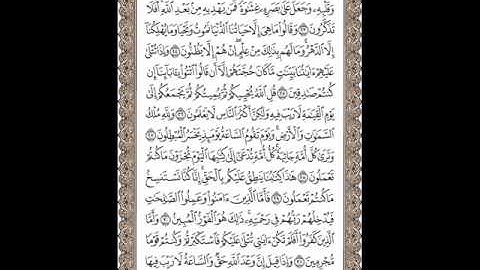 وَقَلْبِهِۦ وَجَعَلَ عَلَىٰ بَصَرِهِۦ غِشَٰوَةً فَمَن يَهْدِيهِ مِنۢ بَعْدِ ٱللَّهِ أَفَلَا
تَذَكَّرُونَ ٢٣ وَقَالُوا۟ مَا هِىَ إِلَّا حَيَاتُنَا ٱلدُّنْيَا نَمُوتُ وَنَحْيَا وَمَا يُهْلِكُنَآ
إِلَّا ٱلدَّهْرُ وَمَا لَهُم بِذَٰلِكَ مِنْ عِلْمٍ إِنْ هُمْ إِلَّا يَظُنُّونَ ٢٤ وَإِذَا تُتْلَىٰ
عَلَيْهِمْ ءَايَٰتُنَا بَيِّنَٰتٍ مَّا كَانَ حُجَّتَهُمْ إِلَّآ أَن قَالُوا۟ ٱئْتُوا۟ بِـَٔابَآئِنَآ إِن
كُنتُمْ صَٰدِقِينَ ٢٥ قُلِ ٱللَّهُ يُحْيِيكُمْ ثُمَّ يُمِيتُكُمْ ثُمَّ يَجْمَعُكُمْ إِلَىٰ
يَوْمِ ٱلْقِيَٰمَةِ لَا رَيْبَ فِيهِ وَلَٰكِنَّ أَكْثَرَ ٱلنَّاسِ لَا يَعْلَمُونَ ٢٦ وَلِلَّهِ مُلْكُ
ٱلسَّمَٰوَٰتِ وَٱلْأَرْضِ وَيَوْمَ تَقُومُ ٱلسَّاعَةُ يَوْمَئِذٍ يَخْسَرُ ٱلْمُبْطِلُونَ ٢٧
وَتَرَىٰ كُلَّ أُمَّةٍ جَاثِيَةً كُلُّ أُمَّةٍ تُدْعَىٰٓ إِلَىٰ كِتَٰبِهَا ٱلْيَوْمَ تُجْزَوْنَ مَا كُنتُمْ
تَعْمَلُونَ ٢٨ هَٰذَا كِتَٰبُنَا يَنطِقُ عَلَيْكُم بِٱلْحَقِّ إِنَّا كُنَّا نَسْتَنسِخُ
مَا كُنتُمْ تَعْمَلُونَ ٢٩ فَأَمَّا ٱلَّذِينَ ءَامَنُوا۟ وَعَمِلُوا۟ ٱلصَّٰلِحَٰتِ
فَيُدْخِلُهُمْ رَبُّهُمْ فِى رَحْمَتِهِۦ ذَٰلِكَ هُوَ ٱلْفَوْزُ ٱلْمُبِينُ ٣٠ وَأَمَّا
ٱلَّذِينَ كَفَرُوٓا۟ أَفَلَمْ تَكُنْ ءَايَٰتِى تُتْلَىٰ عَلَيْكُمْ فَٱسْتَكْبَرْتُمْ وَكُنتُمْ قَوْمًا
مُّجْرِمِينَ ٣١ وَإِذَا قِيلَ إِنَّ وَعْدَ ٱللَّهِ حَقٌّ وَٱلسَّاعَةُ لَا رَيْبَ فِيهَا